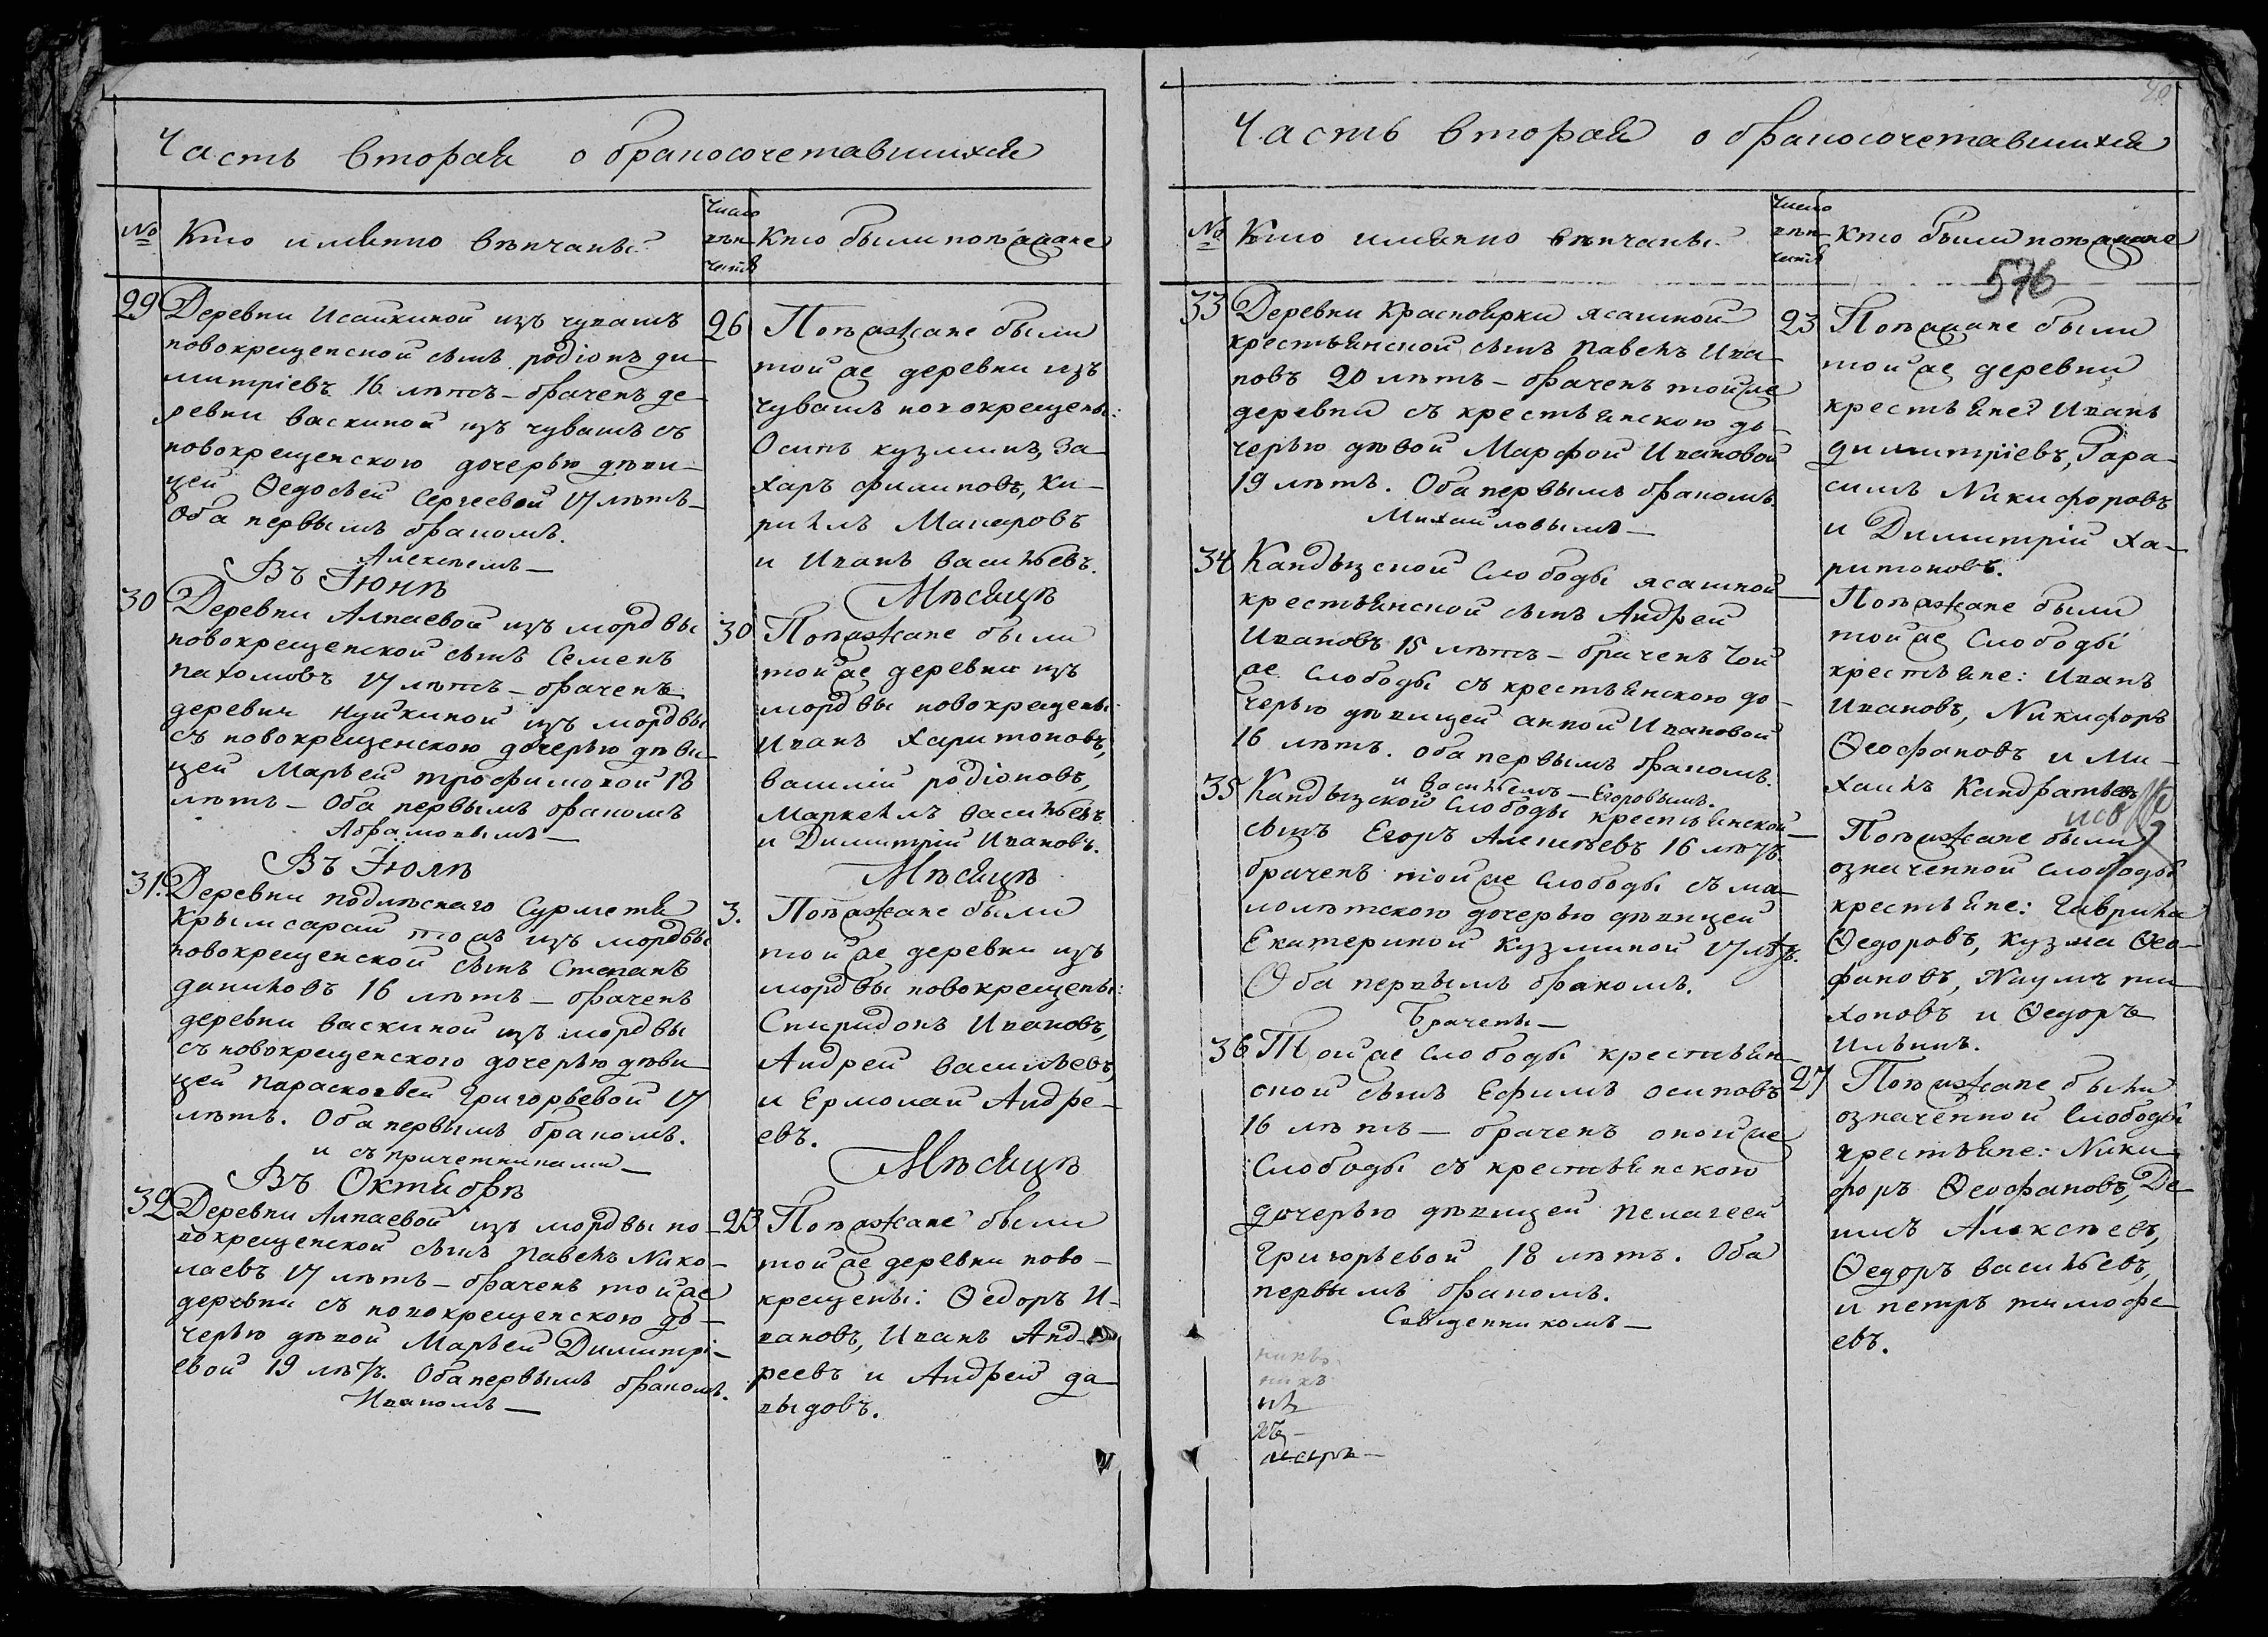 Часть вторая о бракосочетавшихся
№
Кто именно венчаны
Число
вѣн-
чанія
Кто были поѣзжане
29
Деревни Исайкиной изъ чувашъ
новокрещенской сынъ родіонъ ди-
митріевъ 16 лѣтъ – браченъ де-
ревни васкиной изъ чувашъ съ
новокрещенскою дочерью дѣви-
цей Ѳедосьей Сергеевой 17 лѣтъ –
Оба первымъ бракомъ.
Алексѣемъ –
26
Поѣзжане были
той же деревни изъ
чувашъ новокрещены:
Осипъ кузминъ, За-
харъ филиповъ, Ки-
рилъ Макаровъ
и Иванъ васильевъ.
Въ Іюнѣ
Мѣсяцѣ
30
Деревни Алпаевой изъ мордвы
новокрещенской сынъ Семенъ
пахомовъ 17 лѣтъ – браченъ
деревни Нуйкиной изъ мордвы
съ новокрещенскою дочерью дѣви-
цей Марьей трофимовой 18
лѣтъ – Оба первымъ бракомъ
Абрамовымъ –
30
Поѣзжане были
той же деревни изъ
мордвы новокрещены
Иванъ Харитоновъ,
василій родіоновъ,
Маркелъ васильевъ
и Димитрій Ивановъ.
Въ Іюлѣ
Мѣсяцѣ
31.
Деревни подлѣснаго Сурметя
Крымсарай тожъ изъ мордвы
новокрещенской сынъ Степанъ
даниловъ 16 лѣтъ – браченъ
деревни васкиной изъ мордвы
съ новокрещенского дочерью дѣви
цей парасковьей Григорьевой 17
лѣтъ. Оба первымъ бракомъ.
и съ причетниками –
3.
Поѣзжане были
той же деревни изъ
мордвы новокрещены:
Спиридонъ Ивановъ,
Андрей васильевъ,
и Ермолай Андре-
евъ.
Въ Октябрѣ
Мѣсяцѣ
32
Деревни Алпаевой изъ мордвы но-
вокрещенской сынъ павелъ Нико-
лаевъ 17 лѣтъ – браченъ той же
деревни съ новокрещенскою до-
черью дѣвой Марьей Димитрі-
евой 19 лѣтъ. Оба первымъ бракомъ.
Иваномъ –
23
Поѣзжане были
той же деревни ново-
крещены: Ѳедоръ И-
вановъ, Иванъ Анд-
реевъ и Андрей да
выдовъ.
Часть вторая о бракосочетавшихся
№
Кто именно вѣнчаны
Число
вѣн-
чанія
Кто были поѣзжане
576
33
Деревни Красноярки ясашной
крестьянской сынъ павелъ Ива-
новъ 20 лѣтъ – браченъ той же
деревни съ крестьянскою до-
черью дѣвой Марфой Ивановой
19 лѣтъ. Оба первымъ бракомъ.
Михайловымъ –
23
Поѣзжане были
той же деревни
крестьяне: Иванъ
димитріевъ, Гара-
симъ Никифоровъ
и Димитрій Ха-
ритоновъ.
34
Кандызской Слободы ясашной
крестьянской сынъ Андрей
Ивановъ 15 лѣтъ – браченъ той
же Слободы съ крестьянскою до-
черью дѣвицей анной Ивановой
16 лѣтъ. Оба первымъ бракомъ.
и васильемъ – Егоровымъ.
Поѣзжане были
той же Слободы
крестьяне: Иванъ
Ивановъ, Никифоръ
Ѳеофановъ и Ми-
хаилъ Кандратьевъ
35
Кандызской Слободы крестьянской
сынъ Егоръ Алексѣевъ 16 лѣтъ.
браченъ той же Слободы съ ма-
лолѣтскою дочерью дѣвицей
Екатериной Кузминой 17 лѣтъ.
Оба первымъ бракомъ.
Брачены –
Поѣзжане были
означенной слободы
крестьяне: Гаврила
Ѳедоровъ, кузма Ѳео-
фановъ, Наумъ ти-
хоновъ и Ѳедоръ
Ильинъ.
36
Той же слободы крестьян-
ской сынъ Ефимъ осиповъ
16 лѣтъ – браченъ оной же
Слободы съ крестьянскою
дочерью дѣвицей пелагеей
Григорьевой 18 лѣтъ. Оба
первымъ бракомъ.
Священникомъ –
27
Поѣзжане были
означенной Слободы
крестьяне: Ники-
форъ Ѳеофановъ, Де-
нисъ Алексѣевъ,
Ѳедоръ васильевъ,
и петръ тимофе-
евъ.